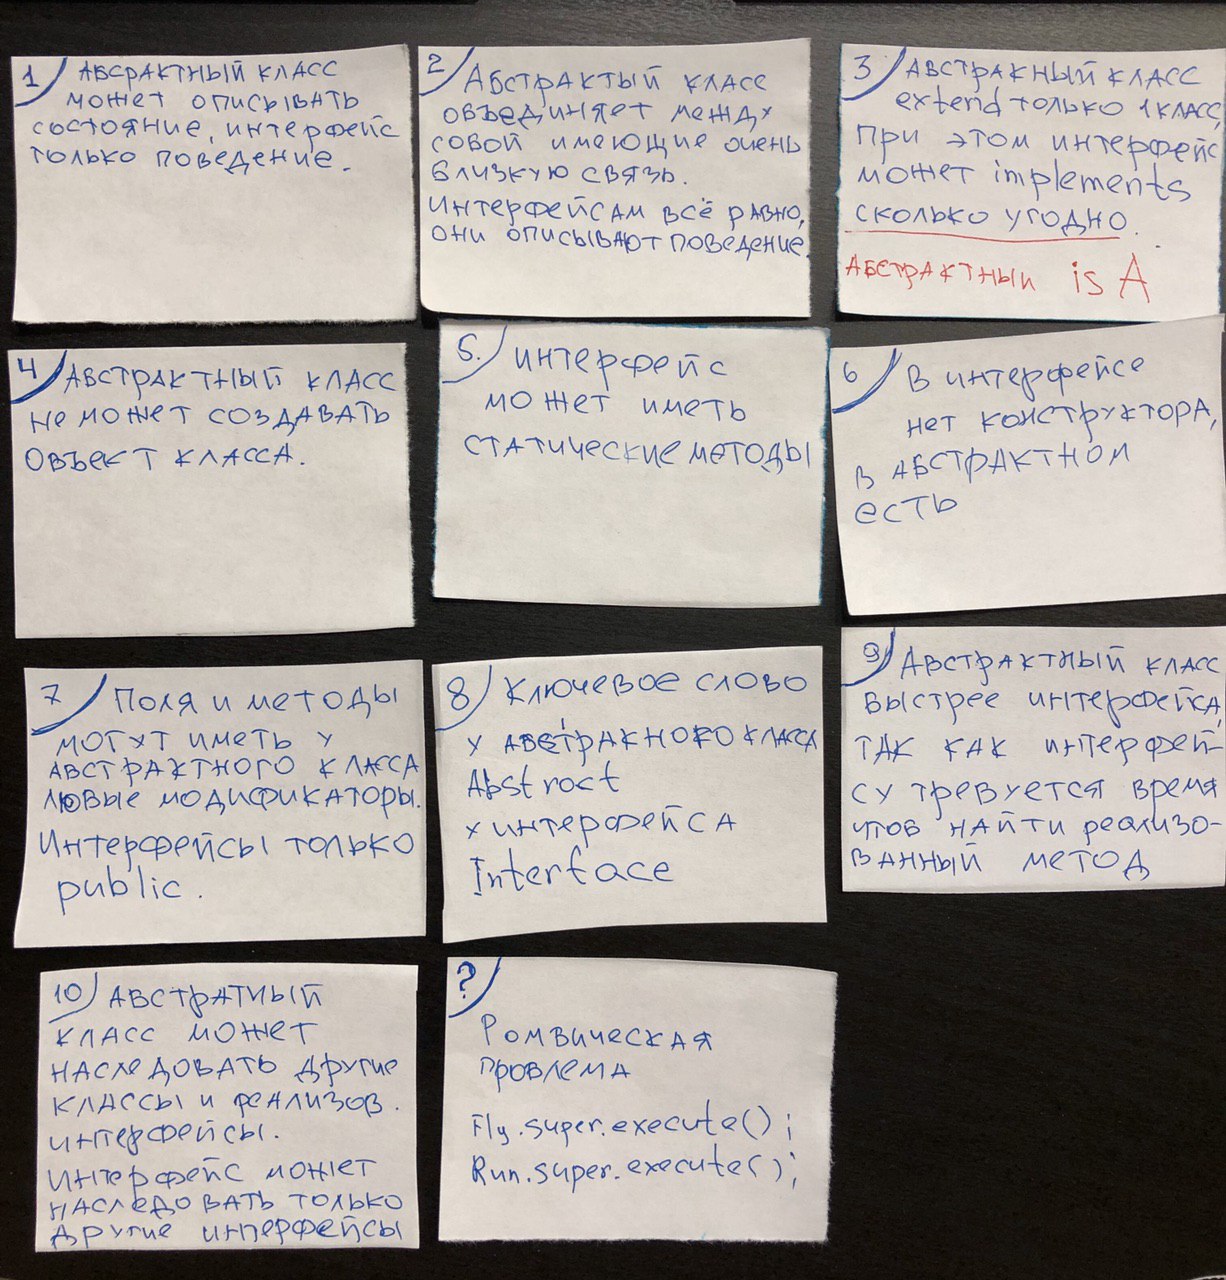 1 АБСРАКТНЫЙ КЛАСС
МОЖЕТ ОПИСЫВАТЬ
СОСТОЯНИЕ, ИНТЕРФЕЙС
ТОЛЬКО ПОВЕДЕНИЕ.
2 АБСТРАКТЫЙ КЛАСС
ОБЪЕДИНЯЕТ МЕЖДУ
СОБОЙ ИМЕЮЩИЕ ОЧЕНЬ
БЛИЗКУЮ СВЯЗЬ.
ИНТЕРФЕЙСАМ ВСЁ РАВНО,
ОНИ ОПИСЫВАЮТ ПОВЕДЕНИЕ.
3 АБСТРАКНЫЙ КЛАСС
extend ТОЛЬКО 1 КЛАСС,
ПРИ ЭТОМ ИНТЕРФЕЙС
МОЖЕТ implements
СКОЛЬКО УГОДНО.
АБСТРАКТНЫЙ is A
4 АБСТРАКТНЫЙ КЛАСС
НЕ МОЖЕТ СОЗДАВАТЬ
ОБЪЕКТ КЛАССА.
5. ИНТЕРФЕЙС
МОЖЕТ ИМЕТЬ
СТАТИЧЕСКИЕ МЕТОДЫ
6 В ИНТЕРФЕЙСЕ
НЕТ КОНСТРУКТОРА,
В АБСТРАКТНОМ
ЕСТЬ
7 ПОЛЯ И МЕТОДЫ
МОГУТ ИМЕТЬ У
АБСТРАКТНОГО КЛАССА
ЛЮБЫЕ МОДИФИКАТОРЫ.
ИНТЕРФЕЙСЫ ТОЛЬКО
public.
8 КЛЮЧЕВОЕ СЛОВО
У АБСТРАКНОГО КЛАССА
Abstract
У ИНТЕРФЕЙСА
Interface
9 АБСТРАКТНЫЙ КЛАСС
БЫСТРЕЕ ИНТЕРФЕЙСА,
ТАК КАК ИНТЕРФЕЙ-
СУ ТРЕБУЕТСЯ ВРЕМЯ
ЧТОБ НАЙТИ РЕАЛИЗО-
ВАННЫЙ МЕТОД
10 АБСТРАТНЫЙ
КЛАСС МОЖЕТ
НАСЛЕДОВАТЬ ДРУГИЕ
КЛАССЫ И РЕАЛИЗОВ.
ИНТЕРФЕЙСЫ.
ИНТЕРФЕЙС МОЖЕТ
НАСЛЕДОВАТЬ ТОЛЬКО
ДРУГИЕ ИНТЕРФЕЙСЫ
?
РОМБИЧЕСКАЯ
ПРОБЛЕМА
Fly.super.execute();
Run.super.execute();